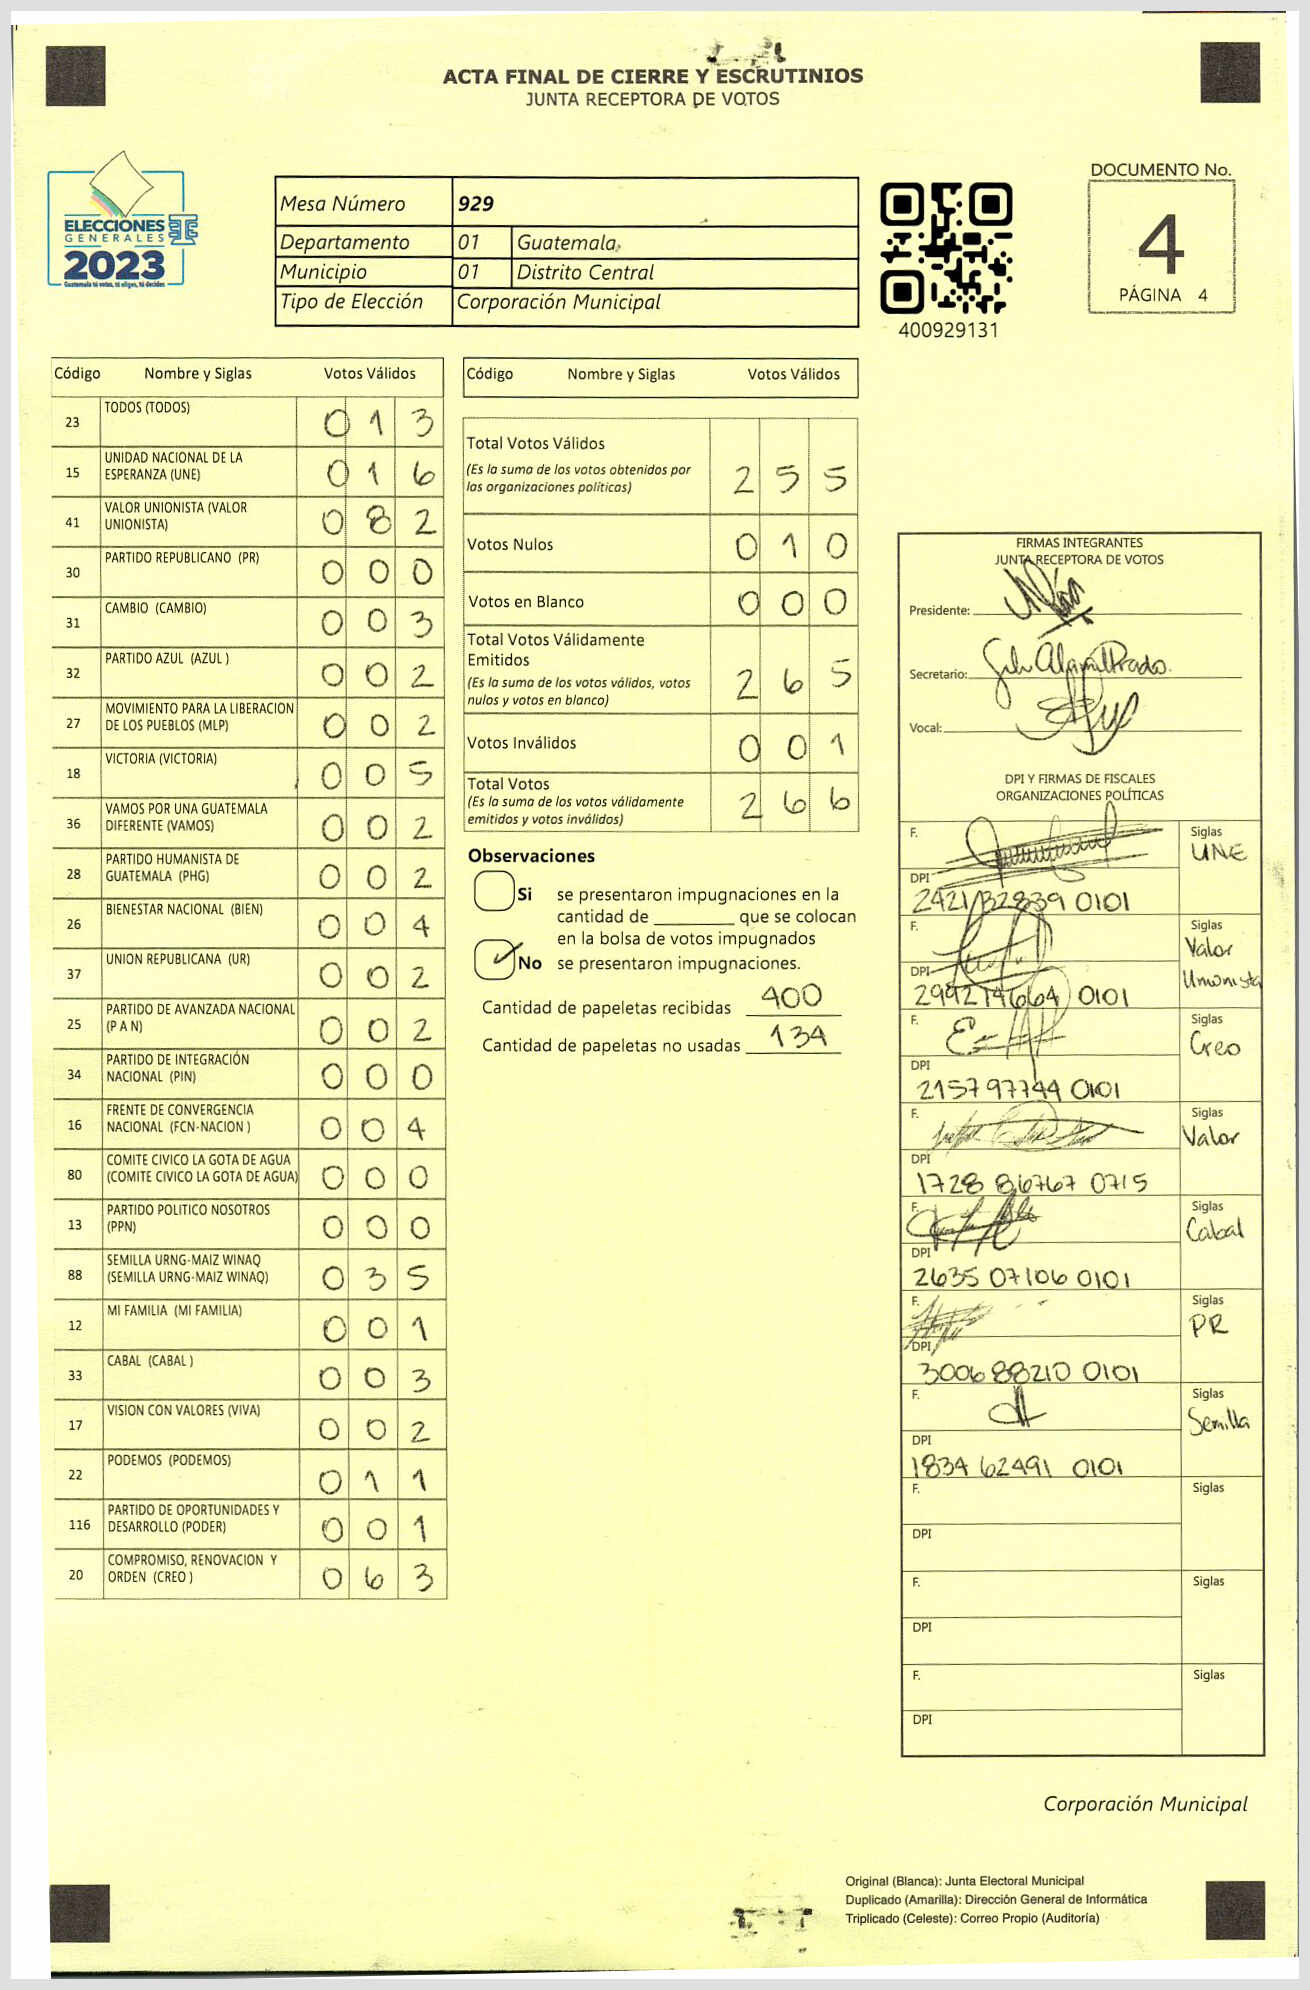 ACTA FINAL DE CIERRE Y ESCRUTINIOS
JUNTA RECEPTORA DE VOTOS
ELECCIONES
GENERALES
2023
Guatemala tú votas, tú eliges, tú decides
Mesa Número 929
Departamento 01 Guatemala
Municipio 01 Distrito Central
Tipo de Elección Corporación Municipal
400929131
DOCUMENTO No.
4
PÁGINA 4
Código Nombre y Siglas Votos Válidos
23 TODOS (TODOS) 0 1 3
15 UNIDAD NACIONAL DE LA
ESPERANZA (UNE) 0 1 6
41 VALOR UNIONISTA (VALOR
UNIONISTA) 0 8 2
30 PARTIDO REPUBLICANO (PR) 0 0 0
31 CAMBIO (CAMBIO) 0 0 3
32 PARTIDO AZUL (AZUL ) 0 0 2
27 MOVIMIENTO PARA LA LIBERACION
DE LOS PUEBLOS (MLP) 0 0 2
18 VICTORIA (VICTORIA) 0 0 5
36 VAMOS POR UNA GUATEMALA
DIFERENTE (VAMOS) 0 0 2
28 PARTIDO HUMANISTA DE
GUATEMALA (PHG) 0 0 2
26 BIENESTAR NACIONAL (BIEN) 0 0 4
37 UNION REPUBLICANA (UR) 0 0 2
25 PARTIDO DE AVANZADA NACIONAL
(P A N) 0 0 2
34 PARTIDO DE INTEGRACIÓN
NACIONAL (PIN) 0 0 0
16 FRENTE DE CONVERGENCIA
NACIONAL (FCN-NACION ) 0 0 4
80 COMITE CIVICO LA GOTA DE AGUA
(COMITE CIVICO LA GOTA DE AGUA) 0 0 0
13 PARTIDO POLITICO NOSOTROS
(PPN) 0 0 0
88 SEMILLA URNG-MAIZ WINAQ
(SEMILLA URNG-MAIZ WINAQ) 0 3 5
12 MI FAMILIA (MI FAMILIA) 0 0 1
33 CABAL (CABAL ) 0 0 3
17 VISION CON VALORES (VIVA) 0 0 2
22 PODEMOS (PODEMOS) 0 1 1
116 PARTIDO DE OPORTUNIDADES Y
DESARROLLO (PODER) 0 0 1
20 COMPROMISO, RENOVACION Y
ORDEN (CREO ) 0 6 3
Código Nombre y Siglas Votos Válidos
Total Votos Válidos
(Es la suma de los votos obtenidos por
las organizaciones políticas) 2 5 5
Votos Nulos 0 1 0
Votos en Blanco 0 0 0
Total Votos Válidamente
Emitidos
(Es la suma de los votos válidos, votos
nulos y votos en blanco) 2 6 5
Votos Inválidos 0 0 1
Total Votos
(Es la suma de los votos válidamente
emitidos y votos inválidos) 2 6 6
Observaciones
Si se presentaron impugnaciones en la
cantidad de ________ que se colocan
en la bolsa de votos impugnados
No se presentaron impugnaciones.
Cantidad de papeletas recibidas 400
Cantidad de papeletas no usadas 134
FIRMAS INTEGRANTES
JUNTA RECEPTORA DE VOTOS
Presidente:
Secretario:
Vocal:
DPI Y FIRMAS DE FISCALES
ORGANIZACIONES POLÍTICAS
F. Siglas
UNE
DPI
2421 32839 0101
F. Siglas
Valor
Unionista
DPI
2992 14664 0101
F. Siglas
Creo
DPI
2157 97744 0101
F. Siglas
Valor
DPI
1728 86767 0715
F. Siglas
Cabal
DPI
2635 07106 0101
F. Siglas
PR
DPI
3006 88210 0101
F. Siglas
Semilla
DPI
1834 62491 0101
F. Siglas
DPI
F. Siglas
DPI
F. Siglas
DPI
Corporación Municipal
Original (Blanca): Junta Electoral Municipal
Duplicado (Amarilla): Dirección General de Informática
Triplicado (Celeste): Correo Propio (Auditoría)